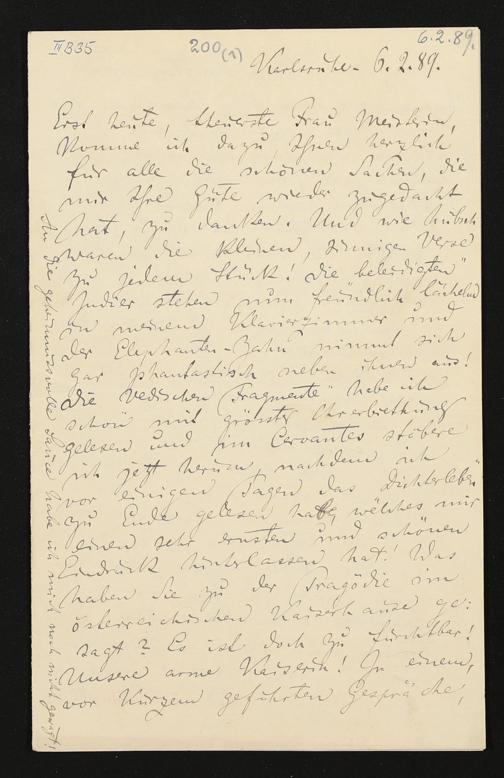 III B35
200 (1)
6.2.89.
Karlsruhe - 6.2.89.
Erst heute, theuerste Frau Meisterin,
komme ich dazu Ihnen herzlich
für alle die schönen Sachen, die
mir Ihre Güte wieder zugedacht
hat, zu danken. Und wie hübsch
waren die kleinen, sinnigen Verse
zu jedem Stück! Die beleidigten"
Indier stehen nun freundlich lächelnd
in meinem Klavierzimmer und
der Elephanten-Zahn nimmt sich
gar phantastisch neben ihnen aus!
Die Vedischen Fragmente" habe ich
schon mit grösster Ehrerbiethung
gelesen und im Cervantes stöbere
ich jetzt herum, nachdem ich
vor einigen Tagen das Dichterleben
zu Ende gelesen habe, welches mir
einen sehr ernsten und schönen
Eindruck hinterlassen hat! Was
haben Sie zu der Tragödie im
österreichischen Kaiserhause ge:
sagt? Es ist doch zu furchtbar!
Unsere arme Kaiserin! In einem,
vor Kurzem geführten Gespräche,
An die geheimnissvolle Sauce habe ich mich noch nicht gewagt!